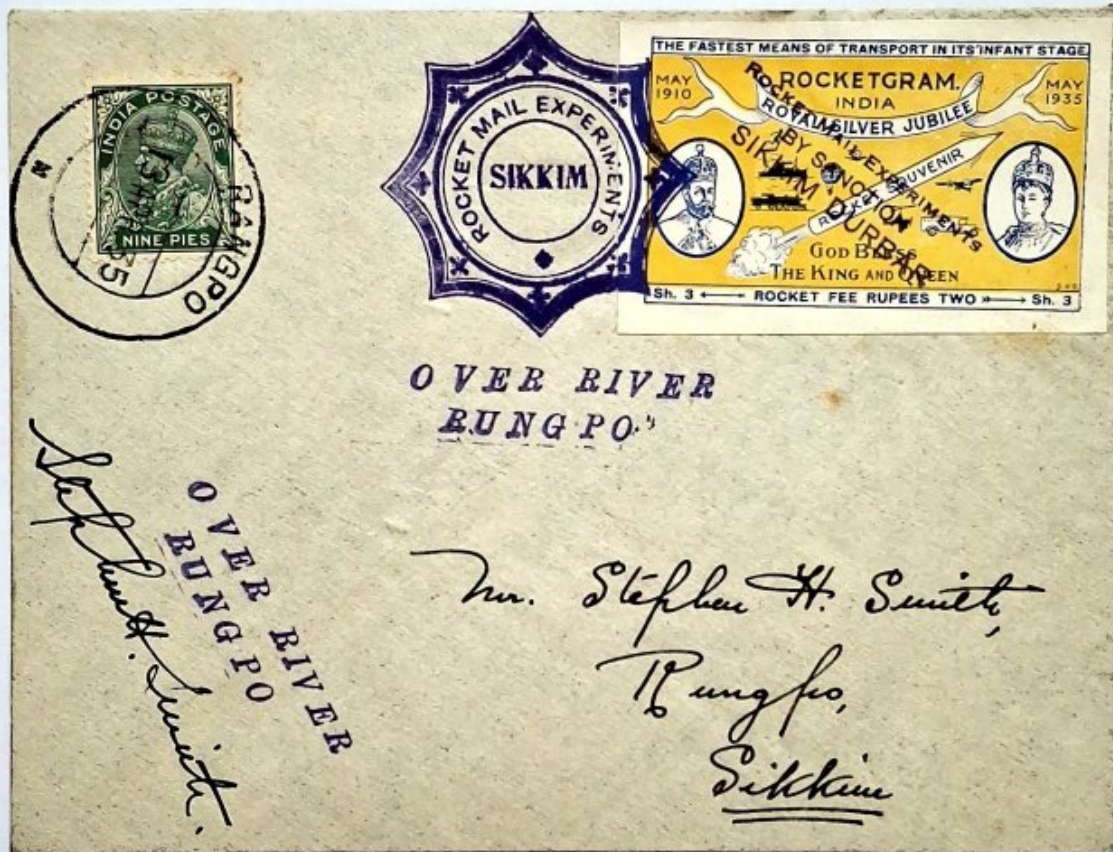 INDIA POSTAGE
NINE PIES
RANGPO
13
35
ROCKET MAIL EXPERIMENTS
SIKKIM
THE FASTEST MEANS OF TRANSPORT IN ITS INFANT STAGE
MAY
1910
ROCKETGRAM.
INDIA
ROYAL SILVER JUBILEE
MAY
1935
ROCKET MAIL EXPERIMENTS
BY SANCTION
SIKKIM DURBAR
ROCKET SOUVENIR
GOD BLESS
THE KING AND QUEEN
Sh. 3 ROCKET FEE RUPEES TWO Sh. 3
OVER RIVER
RUNGPO
OVER RIVER
RUNGPO
Stephen H. Smith.
Mr. Stephen H. Smith,
Rungpo,
Sikkim